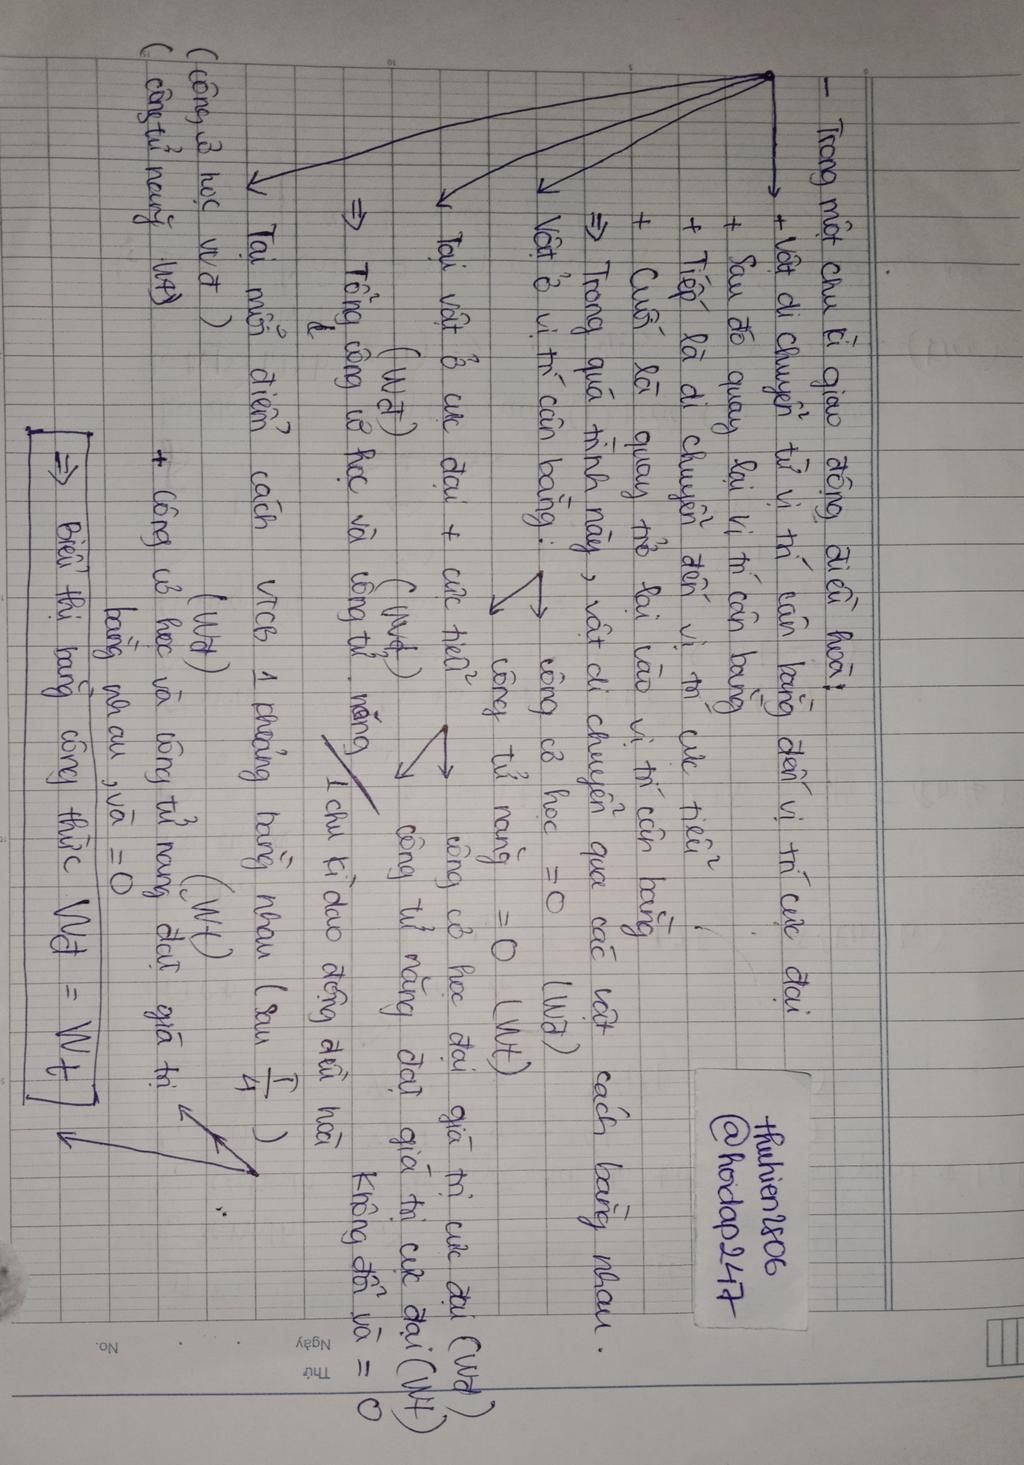 - Trong một chu kì giao động điều hoà:
+ Vật di chuyển từ vị trí cân bằng đến vị trí cực đại
+ Sau đó quay lại vị trí cân bằng
+ Tiếp là di chuyển đến vị trí cực tiểu
+ Cuối là quay trở lại vào vị trí cân bằng
⇒ Trong quá trình này, vật di chuyển qua các vật cách bằng nhau.
Vật ở vị trí cân bằng:
công cơ học = 0 (Wđ)
công tử năng = 0 (Wt)
Tại vật ở cực đại + cực tiểu
công cơ học đại giá trị cực đại (Wđ)
công tử năng đại giá trị cực đại (Wt)
(Wđ) (Wt)
⇒ Tổng công cơ học và công tử năng / 1 chu kì dao động đều hoà không đổi và = 0
Tại mỗi điểm cách VTCB 1 khoảng bằng nhau (sau T/4)
(công cơ học Wđ)
(công tử năng Wt)
(Wđ) (Wt)
+ công cơ học và công tử năng đại giá trị
bằng nhau, và = 0
⇒ Biểu thị bằng công thức Wđ = Wt
thuhien2806
@hoidap247
Thứ
Ngày
No.
0
5
10